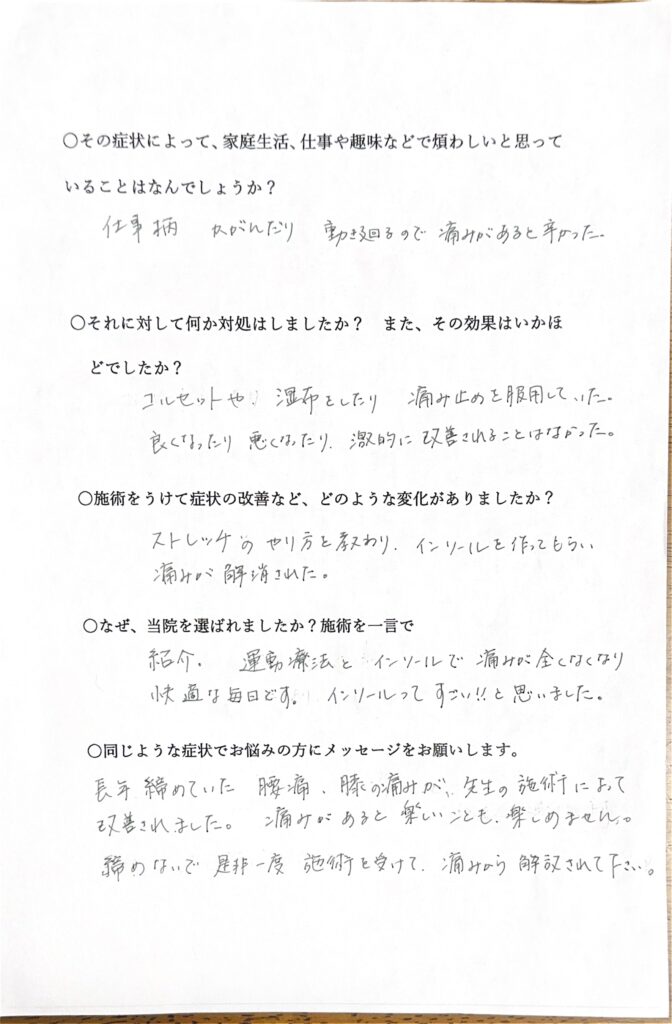 〇その症状によって、家庭生活、仕事や趣味などで煩わしいと思って
いることはなんでしょうか？
仕事柄 かがんだり 動き廻るので 痛みがあると辛かった。
〇それに対して何か対処はしましたか？ また、その効果はいかほ
どでしたか？
コルセットや、湿布をしたり 痛み止めを服用していた。
良くなったり 悪くなったり、激的に改善されることはなかった。
〇施術をうけて症状の改善など、どのような変化がありましたか？
ストレッチのやり方を教わり、インソールを作ってもらい
痛みが解消された。
〇なぜ、当院を選ばれましたか？施術を一言で
紹介。 運動療法とインソールで痛みが全くなくなり
快適な毎日です。 インソールってすごい!!と思いました。
〇同じような症状でお悩みの方にメッセージをお願いします。
長年締めていた 腰痛、膝の痛みが、先生の施術によって
改善されました。 痛みがあると楽しいことも、楽しめません。
締めないで 是非一度 施術を受けて、痛みから解放されて下さい。